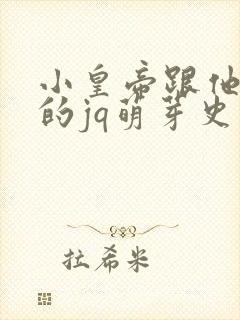 小皇帝跟他
的jq萌芽史
拉希米